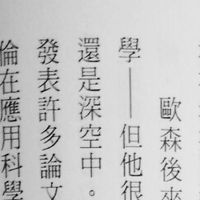 歐森後來
學——但他很
還是深空中。
發表許多論文
倫在應用科學